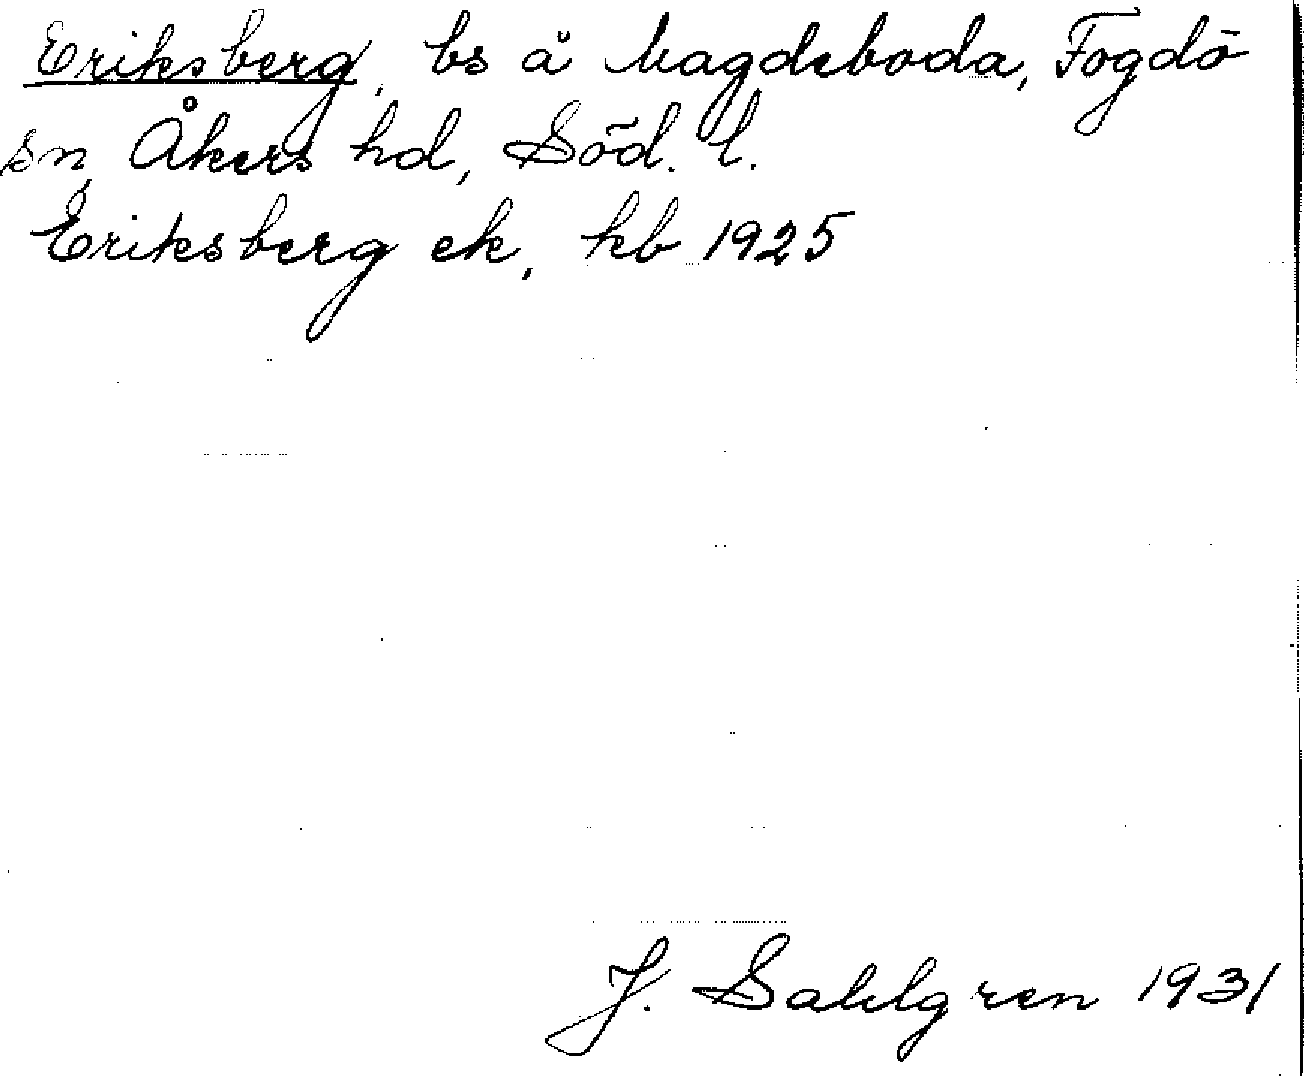 Eriksberg, bs å Vagdeboda, Fogdö
sn, Åkers hd, Söd. l.
Eriksberg ek, kb 1925
J. Sahlgren 1931